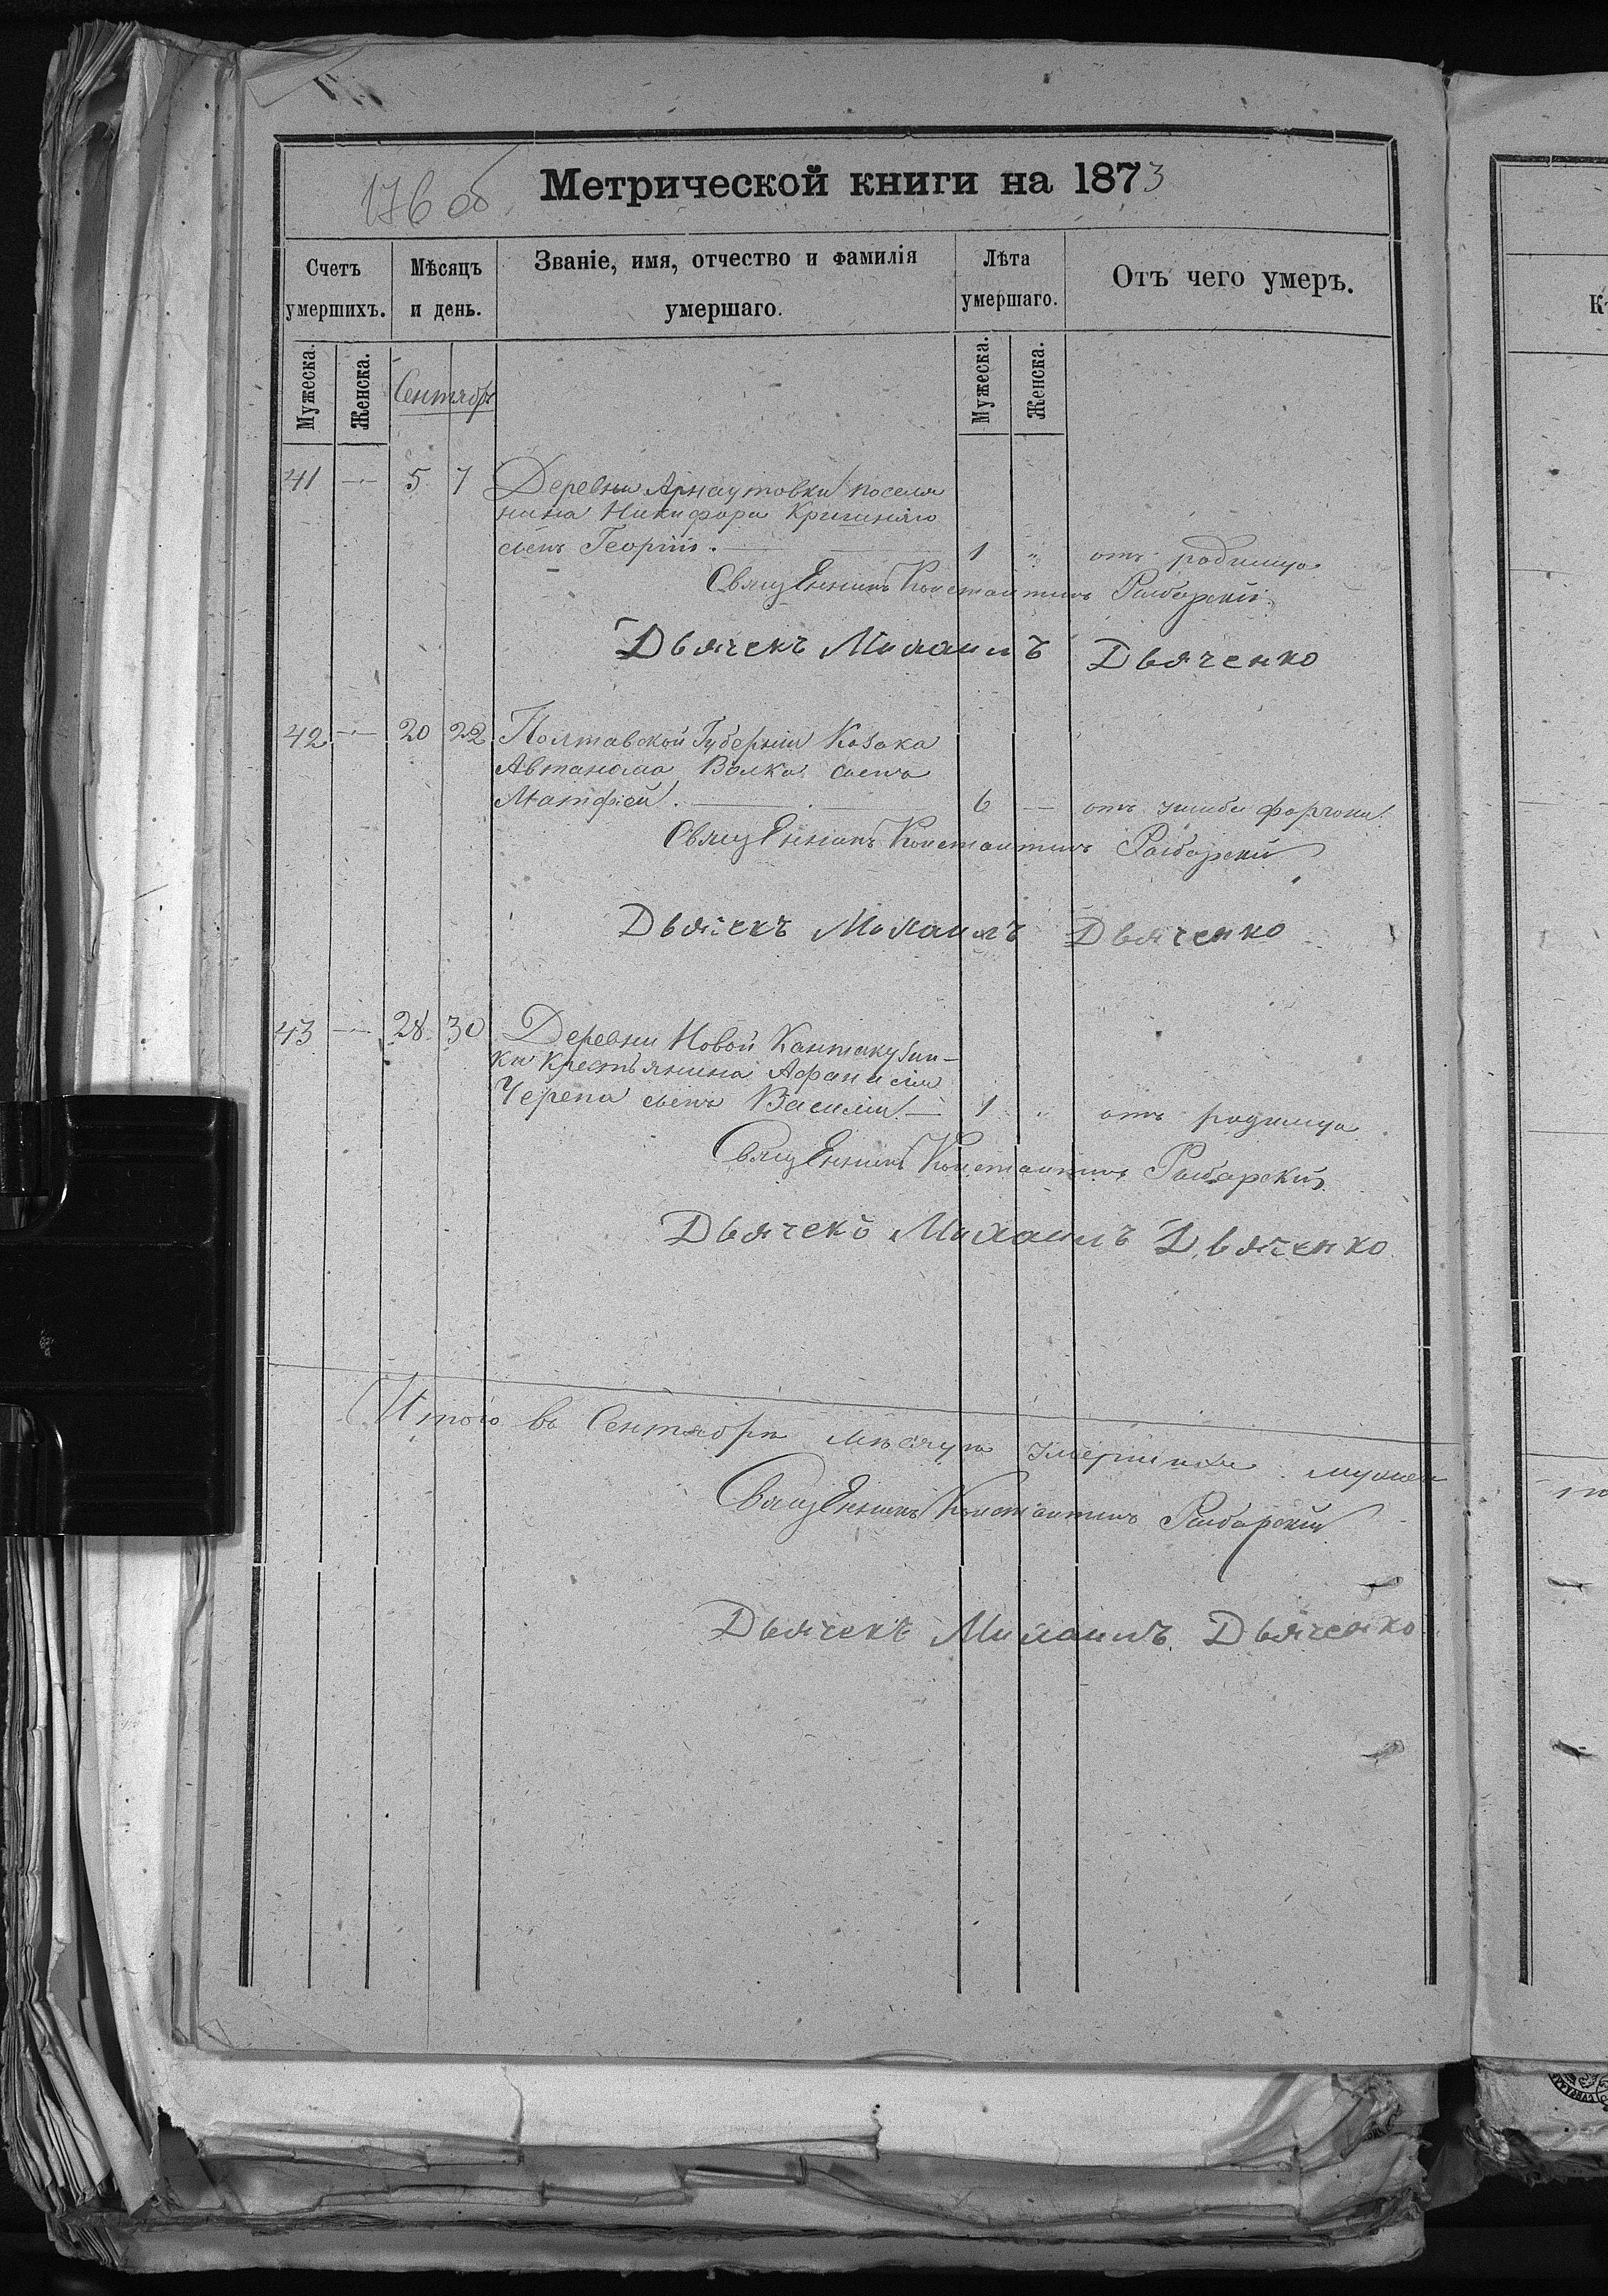 176 об
Метрической книги на 1873
Счетъ умершихъ.
Мѣсяцъ и день.
Званіе, имя, отчество и фамилія умершаго.
Лѣта умершаго.
Отъ чего умеръ.
Мужеска. Женска. Сентябрь Мужеска. Женска.
41 — 5 7 Деревни Арнаутовки поселя
нина Никифора
сынъ Георгій. — 1 " отъ родимца
Священникъ Константинъ
Дьячекъ Михаилъ Дьяченко
42 — 20 22 Полтавской Губерніи Козака
Автанома Волка сынъ
Матфей. — 6 — отъ ушиба
Священникъ Константинъ
Дьячекъ Михаилъ Дьяченко
43 — 28 30 Деревни Новой Кантакузин-
ки Крестьянина Афанасія
Черепа сынъ Василій — 1 " отъ родимца
Священникъ Константинъ
Дьячекъ Михаилъ Дьяченко
Итого въ Сентябрѣ мѣсяцѣ умершихъ мужеск
Священникъ Константинъ
Дьячекъ Михаилъ Дьяченко